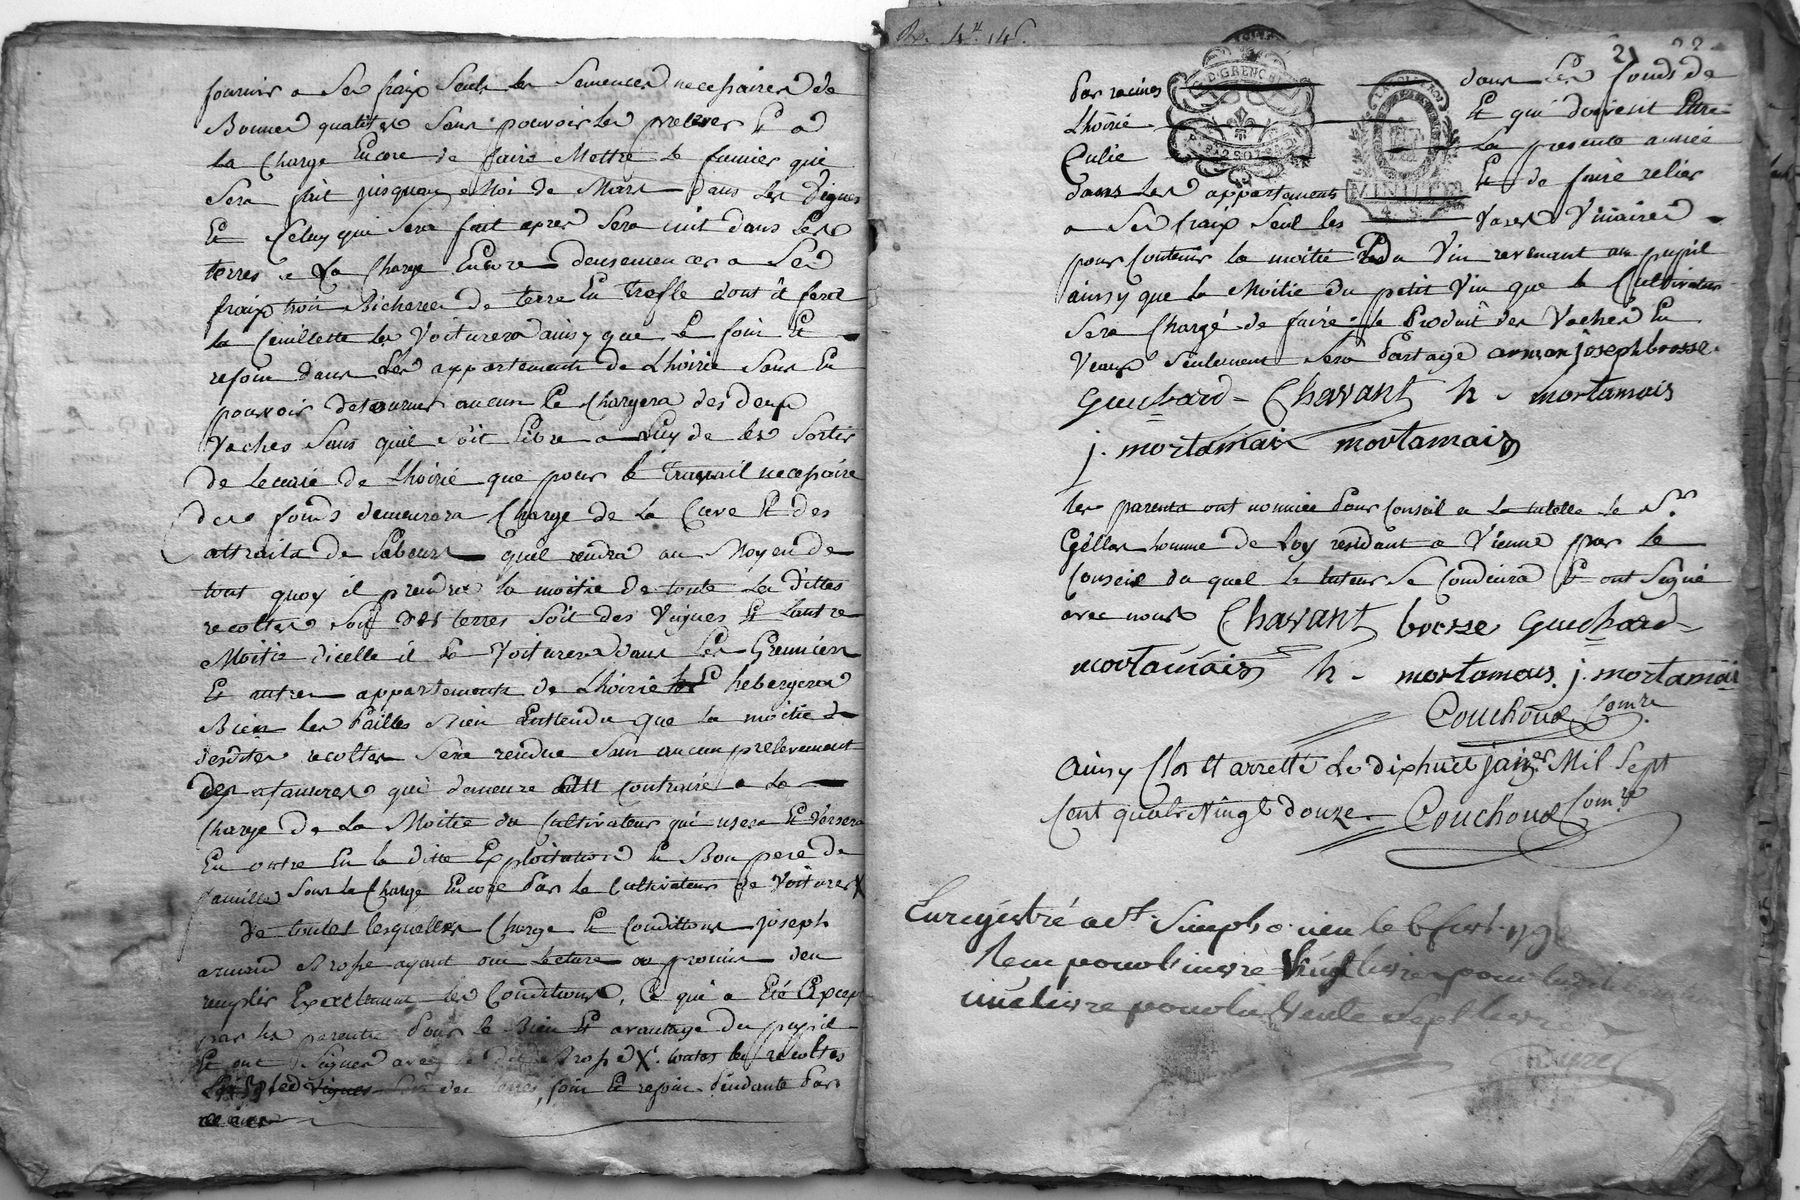 fournir a Ses fraix Seuls les Semences necessaires de
Bonnes qualités Sans pouvoir les prelever Et a
la Charge Encore de faire Mettre le fumier qui
Sera fait jusquau Moi de Mars dans les vignes
Et Celuy qui Sera fait apres Sera mit dans les
terres. a La Charge Encore densemencer a Ses
fraix trois Bicherées de terre En Trefle dont il fera
la Ceuillette les Voiturera ainsy que le foin Et
refoin dans Les appartements de Lhoirie Sans En
pouvoir detourner aucun Se Chargera des deux
Vaches Sans quil Soit Libre a Luy de les Sortir
de Lecurie de Lhoirie que pour le Travail necessaire
des fonds demeurera Charge de La Cuve Et des
attraits de Labeurs quil rendra au Moyen de
tout quoy il prendra la moitie de toute Les dittes
recoltes Soit des terres Soit des Vignes Et Lautre
Moitie dicelle il La Voiturera dans Les Greniers
Et autres appartements de Lhoirie Et hebergera
Bien les Pailles Bien Entendu que la moitie de
desdites recoltes Sera rendue Sans aucun prelevement
des affanures qui demeure au Contraire a La
Charge de La Moitie du Cultivateur qui usera Et Versera
En outre En la ditte Exploitation En Bon pere de
famille Sous la Charge Encore Par le Cultivateur de Voiturer X
De toutes lesquelles Charge Et Conditions joseph
armand Brosse ayant oui lecture a promis den
remplir Exactement les Conditions, Ce qui a Eté Accepté
par les parents Pour le Bien Et avantage du pupil
Et ont Signes avec le dit Brosse X toutes les recoltes
des Vignes Soit des terres, foin Et refoin Pendante Par
racines
Re. 4# 14s.
21 22
Par racines dans Les fonds de
Lhoirie Et qui doivent Etre
Culie La presente année
dans Les appartements Et de faire relier
a Ses fraix Seul les Vases Vinaires
pour Contenir la moitie du Vin revenant au pupil
ainsy que la Moitie du petit Vin que le Cultivateur
Sera Chargé de faire. le Produit des Vaches En
Veaux Seulement Sera Partage arman joseph brosse.
Guichard Chavant h. mortamais
j. mortamais mortamais
les parents ont nommée Pour Conseil a La tutelle le Sr.
Gellas homme de Loy residant a Vienne par le
Conseil du quel le tuteur Se Conduira Et ont Signé
avec nous Chavant brosse Guichard
mortamais h. mortamais. j. mortamai
Couchoud Comre
ainsy Clos Et arretté Le dixhuit janer Mil Sept
Cent quatre Vingt douze. Couchoud Comre
D. GRENOBLE
LA LOI LE ROI
MINUTE
4 S
Enregistré a St. Simphorien le 6 fevr. 1792
Recu pour linvre Vingt livres pour
une livre pour la Vente Sept livres